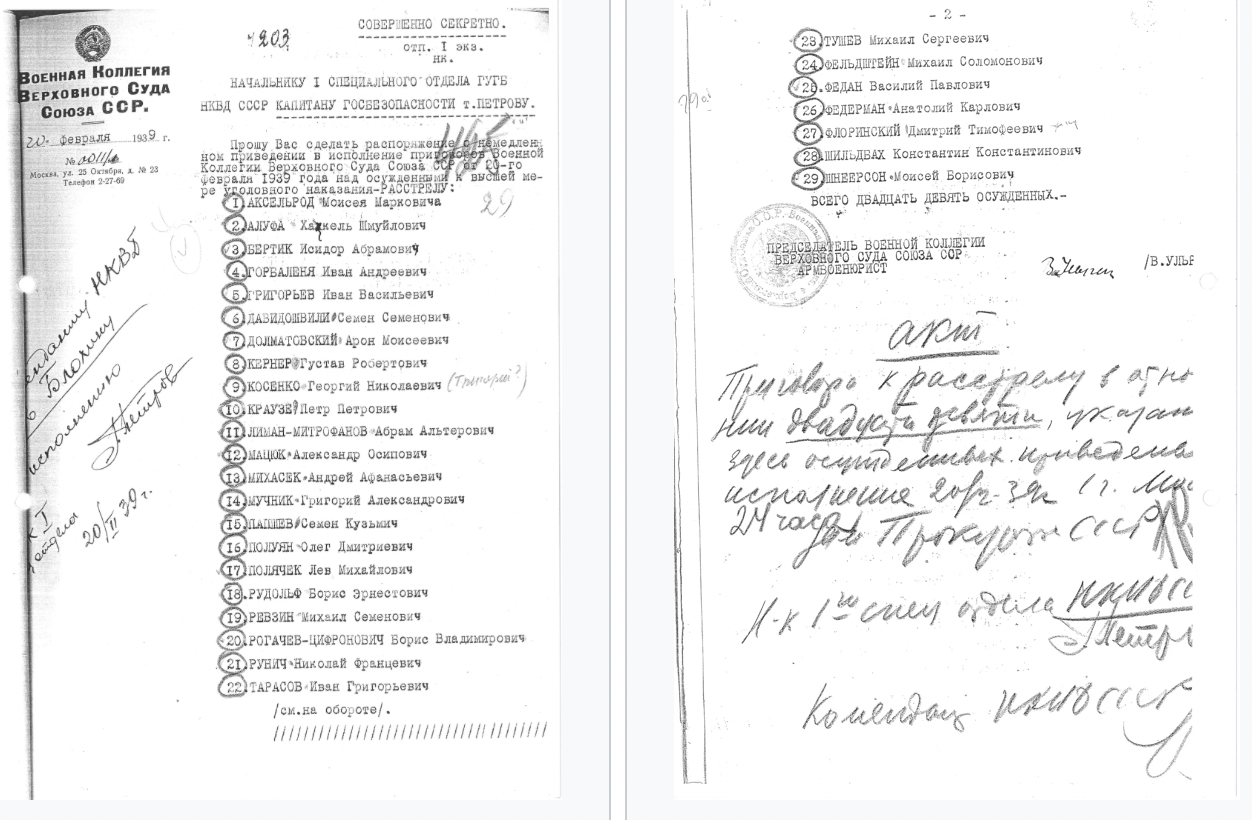 ВОЕННАЯ КОЛЛЕГИЯ
ВЕРХОВНОГО СУДА
СОЮЗА ССР.
20. февраля 1939 г.
№ 0011/
Москва, ул. 25 Октября, д. № 23
Телефон 2-27-69
203
СОВЕРШЕННО СЕКРЕТНО.
отп. I экз.
нк.
НАЧАЛЬНИКУ I СПЕЦИАЛЬНОГО ОТДЕЛА ГУГБ
НКВД СССР КАПИТАНУ ГОСБЕЗОПАСНОСТИ т.ПЕТРОВУ.
Прошу Вас сделать распоряжение о немедлен-
ном приведении в исполнение приговоров Военной
Коллегии Верховного Суда Союза ССР от 20-го
февраля 1939 года над осужденными к высшей ме-
ре уголовного наказания-РАССТРЕЛУ:
29
1.АКСЕЛЬРОД Моисея Марковича
2.АЛУФА Хаккель Шмуйлович
3.БЕРТИК Исидор Абрамович
4.ГОРБАЛЕНЯ Иван Андреевич
5.ГРИГОРЬЕВ Иван Васильевич
6.ДАВИДОШВИЛИ Семен Семенович
7.ДОЛМАТОВСКИЙ Арон Моисеевич
8.КЕРНЕР Густав Робертович
9.КОСЕНКО Георгий Николаевич
10.КРАУЗЕ Петр Петрович
11.ЛИМАН-МИТРОФАНОВ Абрам Альтерович
12.МАЦЮК Александр Осипович
13.МИХАСЕК Андрей Афанасьевич
14.МУЧНИК Григорий Александрович
15.ПАПШЕВ Семен Кузьмич
16.ПОЛУЯН Олег Дмитриевич
17.ПОЛЯЧЕК Лев Михайлович
18.РУДОЛЬФ Борис Эрнестович
19.РЕВЗИН Михаил Семенович
20.РОГАЧЕВ-ЦИФРОНОВИЧ Борис Владимирович
21.РУНИЧ Николай Францевич
22.ТАРАСОВ Иван Григорьевич
/см.на обороте/.
НКВД
Блохину
исполнению
Петров
к I
отдела
20/II 39 г.
- 2 -
23.ТУШЕВ Михаил Сергеевич
24.ФЕЛЬДШТЕЙН Михаил Соломонович
25.ФЕДАН Василий Павлович
26.ФЕДЕРМАН Анатолий Карлович
27.ФЛОРИНСКИЙ Дмитрий Тимофеевич
28.ШИЛЬДБАХ Константин Константинович
29.ШНЕЕРСОН Моисей Борисович
ВСЕГО ДВАДЦАТЬ ДЕВЯТЬ ОСУЖДЕННЫХ.-
ПРЕДСЕДАТЕЛЬ ВОЕННОЙ КОЛЛЕГИИ
ВЕРХОВНОГО СУДА СОЮЗА ССР
АРМВОЕНЮРИСТ
/В.УЛЬР
акт
Приговора к расстрелу в отно
нии двадцати девяти, указан
здесь осужденных приведена
исполнение
24 часа
Зам Прокурора СССР
Н-к 1го спец отдела НКВД СС
Петр
Комендант НКВД СССР